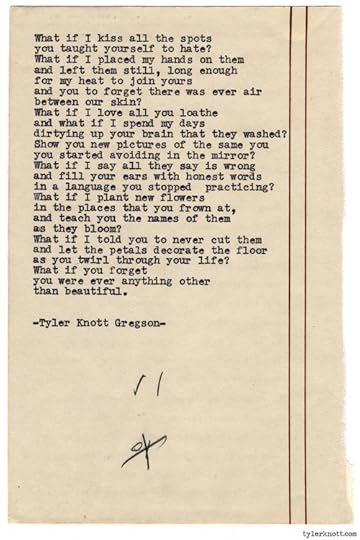 What if I kiss all the spots
you taught yourself to hate?
What if I placed my hands on them
and left them still, long enough
for my heat to join yours
and you to forget there was ever air
between our skin?
What if I love all you loathe
and what if I spend my days
dirtying up your brain that they washed?
Show you new pictures of the same you
you started avoiding in the mirror?
What if I say all they say is wrong
and fill your ears with honest words
in a language you stopped  practicing?
What if I plant new flowers
in the places that you frown at,
and teach you the names of them
as they bloom?
What if I told you to never cut them
and let the petals decorate the floor
as you twirl through your life?
What if you forget
you were ever anything other
than beautiful.
-Tyler Knott Gregson-
tylerknott.com